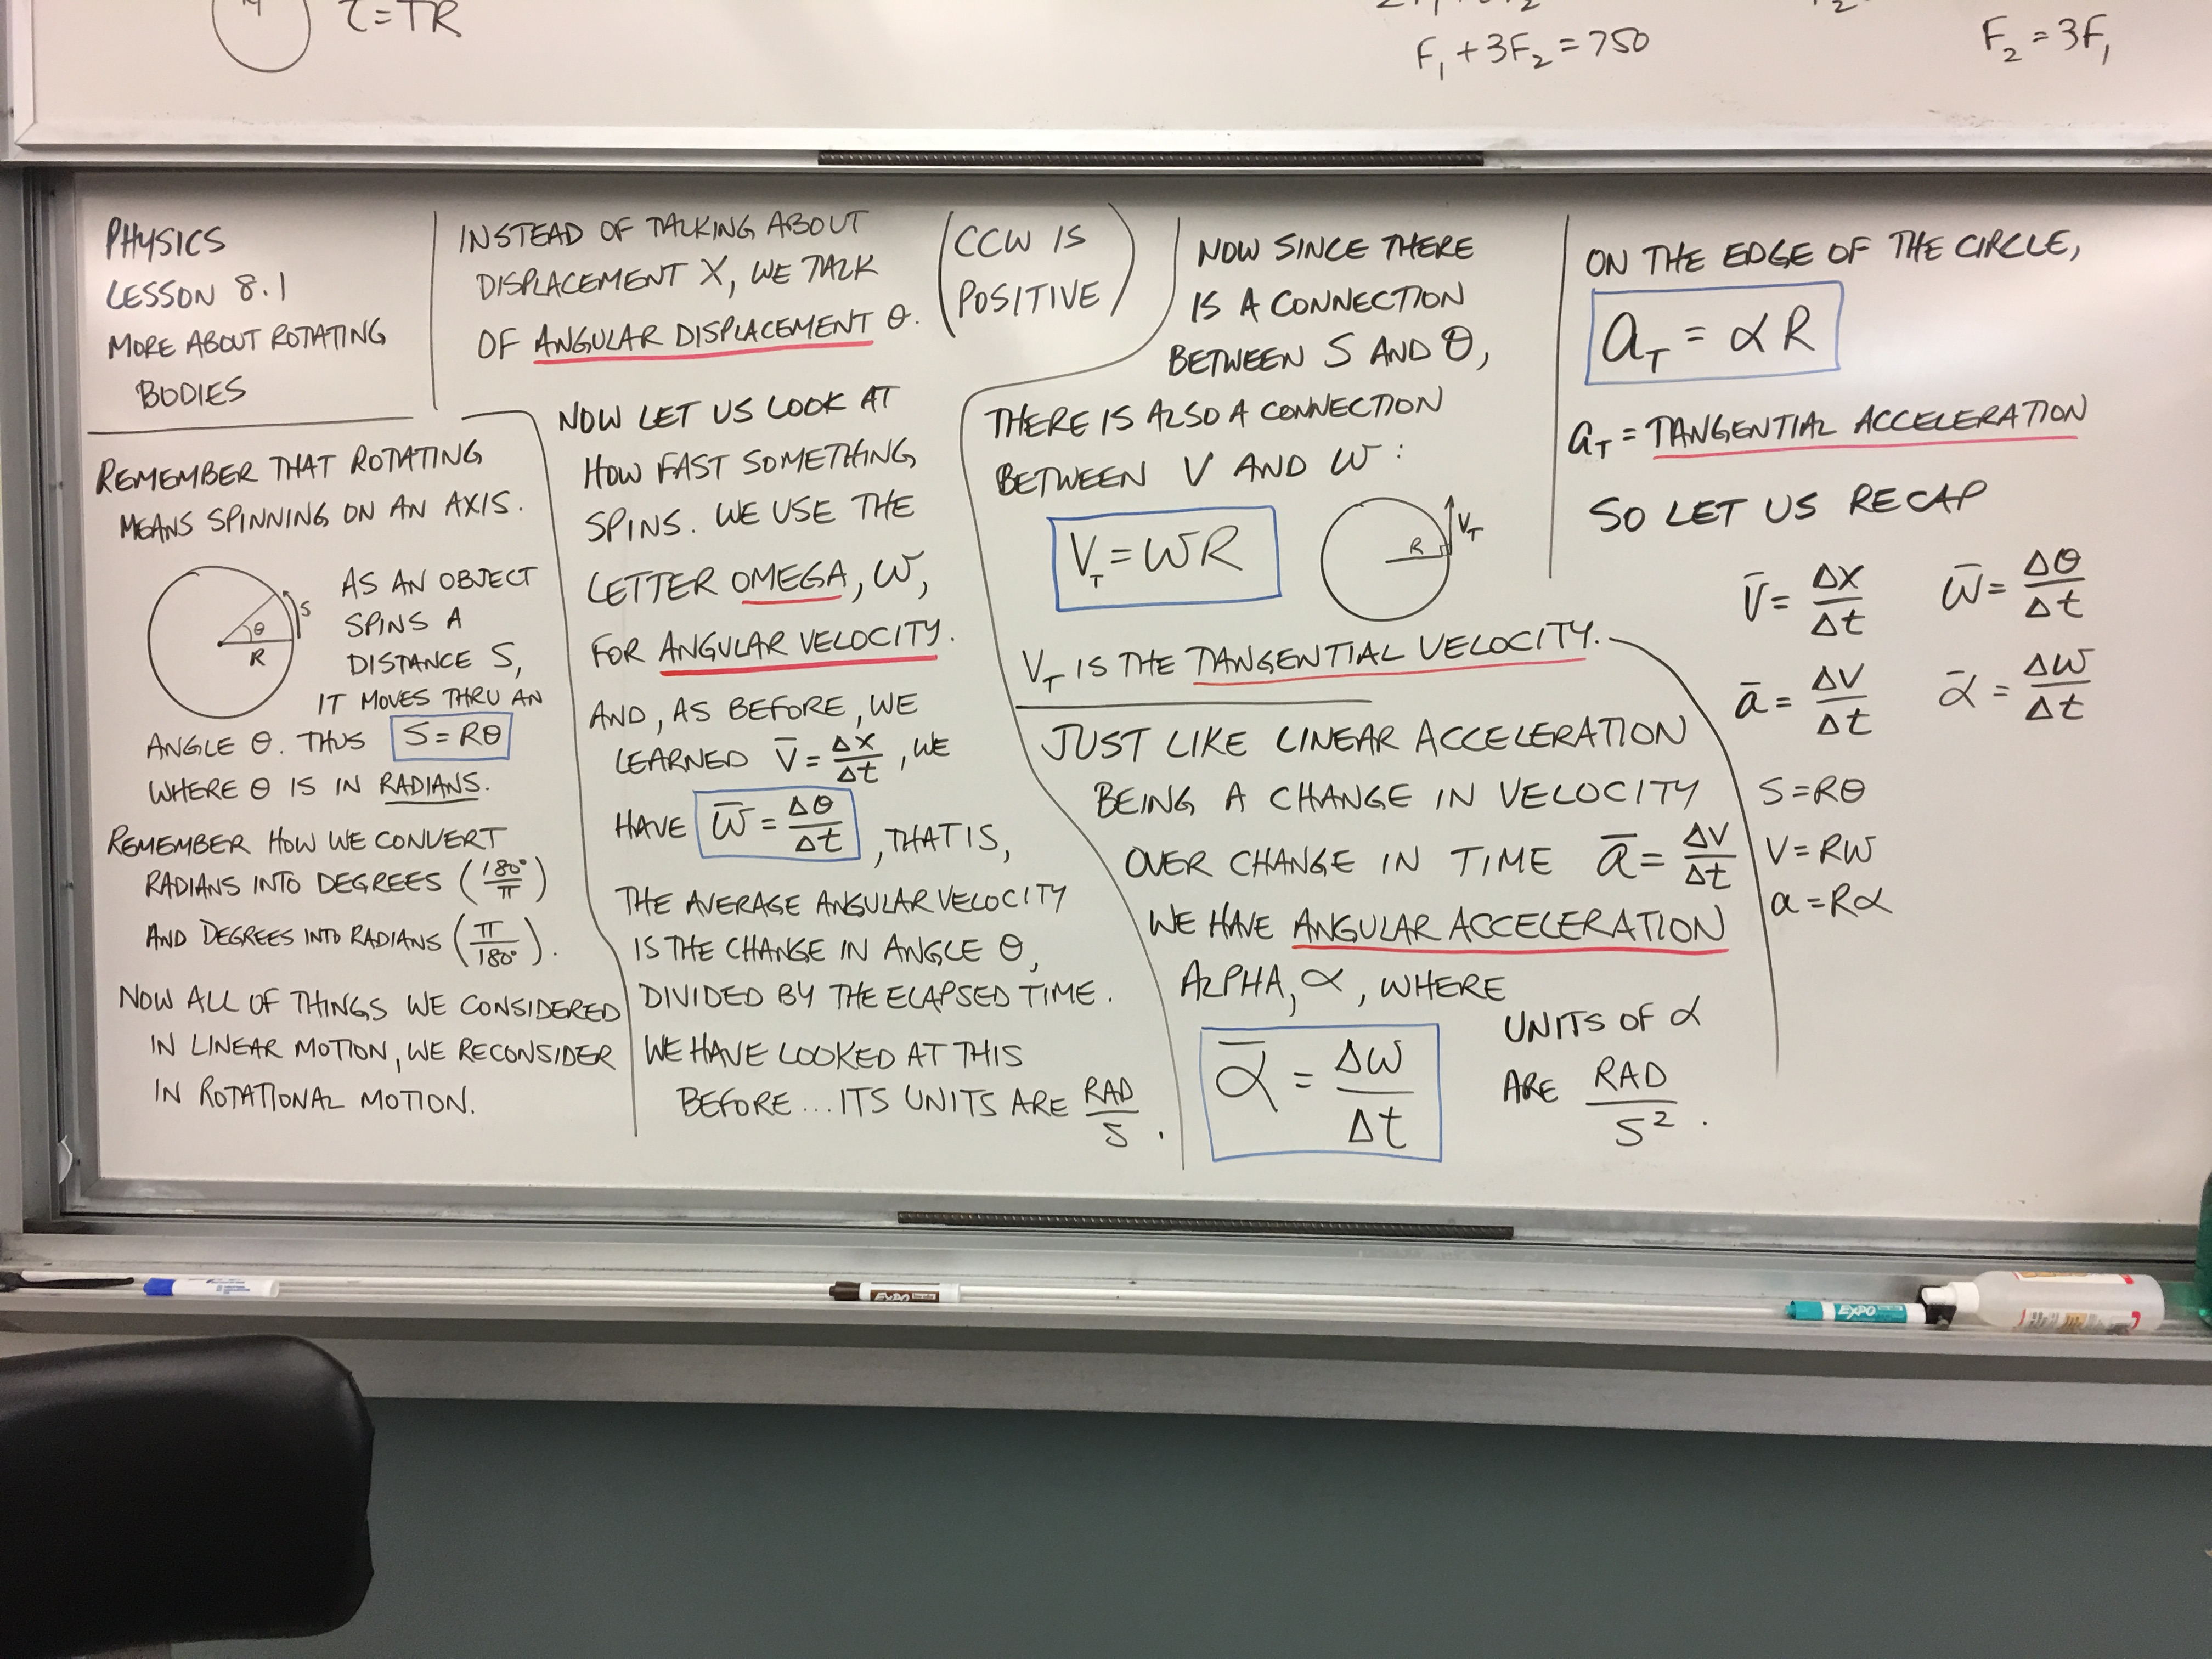 τ = TR
F₁ + 3F₂ = 750
F₂ = 3F₁
PHYSICS
LESSON 8.1
MORE ABOUT ROTATING
BODIES
REMEMBER THAT ROTATING
MEANS SPINNING ON AN AXIS.
θ
R
S
AS AN OBJECT
SPINS A
DISTANCE S,
IT MOVES THRU AN
ANGLE θ. THUS S = Rθ
WHERE θ IS IN RADIANS.
REMEMBER HOW WE CONVERT
RADIANS INTO DEGREES (180°/π)
AND DEGREES INTO RADIANS (π/180°).
NOW ALL OF THINGS WE CONSIDERED
IN LINEAR MOTION, WE RECONSIDER
IN ROTATIONAL MOTION.
INSTEAD OF TALKING ABOUT
DISPLACEMENT X, WE TALK
OF ANGULAR DISPLACEMENT θ.
(CCW IS
POSITIVE)
NOW LET US LOOK AT
HOW FAST SOMETHING
SPINS. WE USE THE
LETTER OMEGA, ω,
FOR ANGULAR VELOCITY.
AND, AS BEFORE, WE
LEARNED V̄ = Δx/Δt, WE
HAVE ω̄ = Δθ/Δt, THAT IS,
THE AVERAGE ANGULAR VELOCITY
IS THE CHANGE IN ANGLE θ,
DIVIDED BY THE ELAPSED TIME.
WE HAVE LOOKED AT THIS
BEFORE... ITS UNITS ARE RAD/S.
NOW SINCE THERE
IS A CONNECTION
BETWEEN S AND θ,
THERE IS ALSO A CONNECTION
BETWEEN V AND ω:
V_T = ωR
R
V_T
V_T IS THE TANGENTIAL VELOCITY.
JUST LIKE LINEAR ACCELERATION
BEING A CHANGE IN VELOCITY
OVER CHANGE IN TIME ā = ΔV/Δt
WE HAVE ANGULAR ACCELERATION
ALPHA, α, WHERE
ᾱ = Δω/Δt
UNITS OF α
ARE RAD/S².
ON THE EDGE OF THE CIRCLE,
a_T = αR
a_T = TANGENTIAL ACCELERATION
SO LET US RECAP
V̄ = Δx/Δt ω̄ = Δθ/Δt
ā = ΔV/Δt ᾱ = Δω/Δt
S = Rθ
V = Rω
a = Rα
EXPO
EXPO